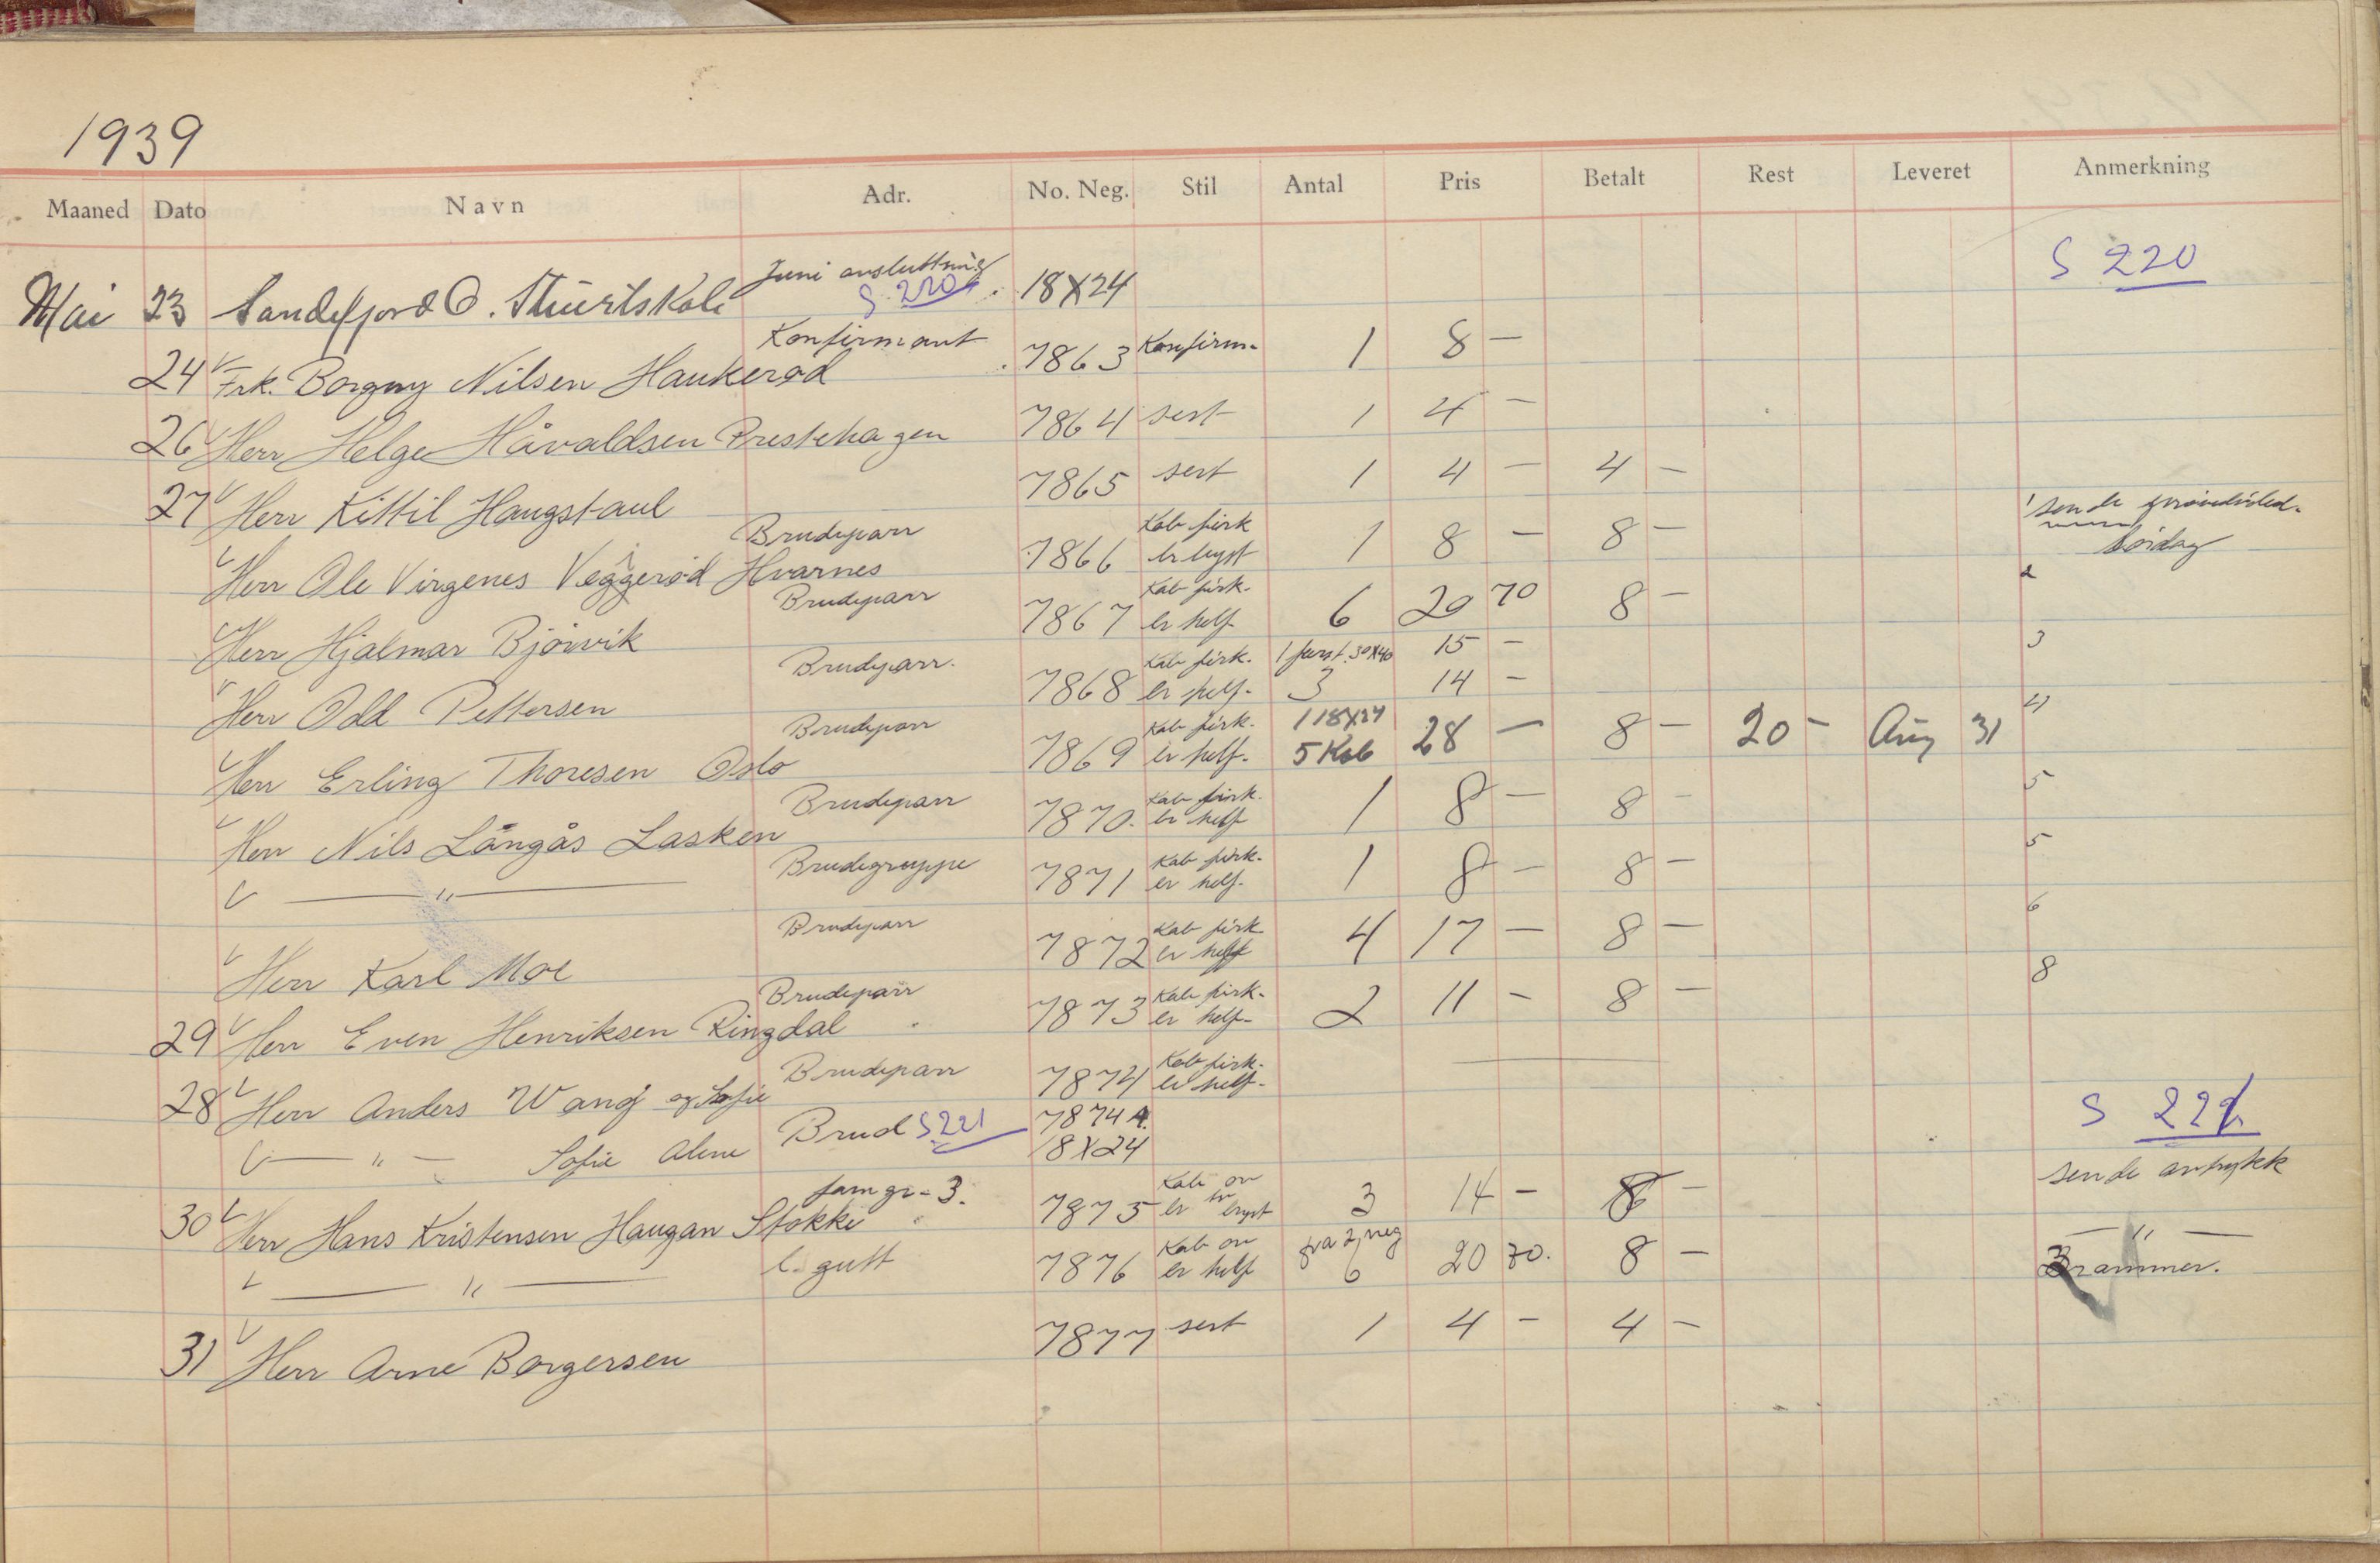 1939
Maaned Dato Navn Adr. No. Neg. Stil Antal Pris Betalt Rest Leveret Anmerkning
Juni avsluttning S 220
Mai 23 Sandefjord O. Skole S. 220 18X24
Konfirmant
24 Frk. Borgny Nilsen Haukerød 7863 Konfirm. 1 8 —
26 Herr Helge Håvaldsen Prestehagen 7864 sert 1 4 —
27 Herr Kittil Haugstaul 7865 sert 1 4 — 4 —
Brudeparr Kab 1 sende
Herr Ole Virgenes Veggerød Hvarnes 7866 1 8 — 8 — lørdag
Brudeparr Kab 2
Herr Hjalmar Bjørvik 7867 er helf 6 20 70 8 —
Brudeparr. Kab 1 30X40 15 — 3
Herr Odd Pettersen 7868 er helf. 3 14 —
Brudeparr Kab 1 18X24 4
Herr Erling Thoresen Oslo 7869 er helf. 5 Kab 28 — 8 — 20 — Aug 31
Brudeparr Kab 5
Herr Nils Långås Lasken 7870. er helf 1 8 — 8 —
Brudegruppe Kab 5
— " — 7871 er helf. 1 8 — 8 —
Brudeparr Kab 6
Herr Karl Moe 7872 er helf 4 17 — 8 —
Brudeparr Kab 8
29 Herr Even Henriksen Ringdal 7873 er helf. 2 11 — 8 —
Brudeparr Kab
28 Herr Anders Wang og Sofie 7874 er helf. —
7874 A. S 221
— " — Sofie Alene Brud S 221 18X24
fam gr. 3. Kab sende
30 Herr Hans Kristensen Haugan Stokke 7875 3 14 — 8 —
Kab fra 2 neg — " —
— " — l. gutt 7876 er helf 6 20 70. 8 — 3 rammer.
31 Herr Arne Borgersen 7877 sert 1 4 — 4 —